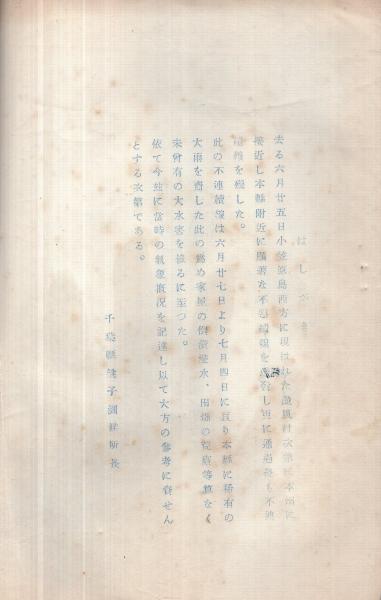 はしがき
去る六月廿五日小笠原島西方に現はれた颱風は次第に本州に
接近し本縣附近に顯著な不連續線を し更に通過後も不連
續線を殘した。
此の不連續線は六月廿七日より七月四日に亘り本縣に稀有の
大雨を齎した此の爲め家屋の倒潰浸水、田畑の 等算なく
未曾有の大水害を蒙るに至つた。
依て今玆に當時の氣象概況を記述し以て大方の參考に資せん
とする次第である。
千葉縣銚子測候所長